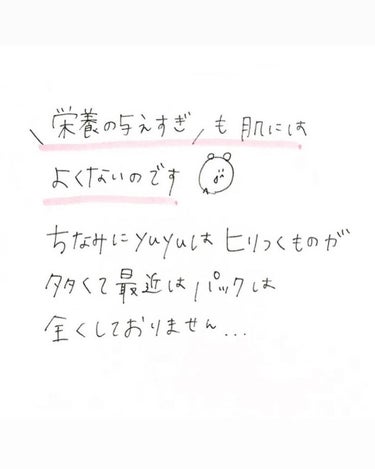 \栄養の与えすぎ/も肌には
よくないのです
ちなみにyuyuはヒリつくものが
多くて最近はパックは
全くしておりません...